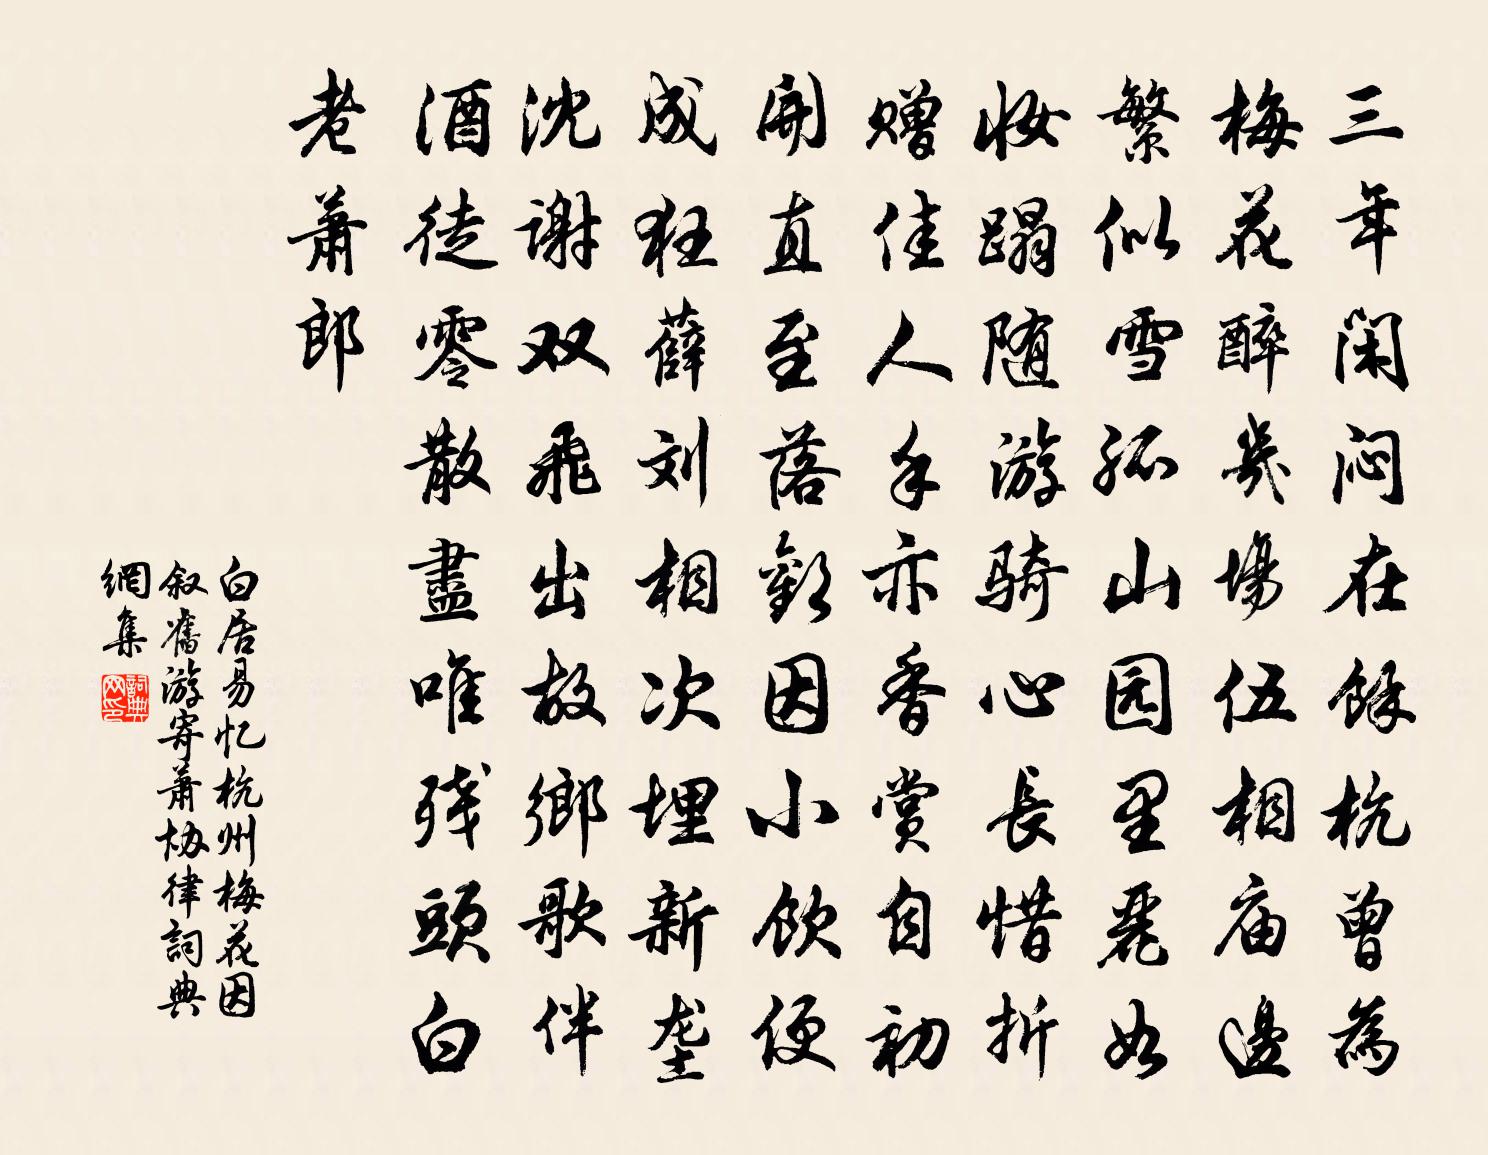 三年闲闷在馀杭曾為
梅花醉幾場伍相庙邊
繁似雪孤山园里麗如
妝蹋随游骑心長惜折
赠佳人手亦香赏自初
開直至落歡因小飲便
成狂薛刘相次埋新垄
沈谢双飛出故鄉歌伴
酒徒零散盡唯残頭白
老萧郎
白居易忆杭州梅花因
叙舊游寄萧协律詞典
網集
詞典
网印